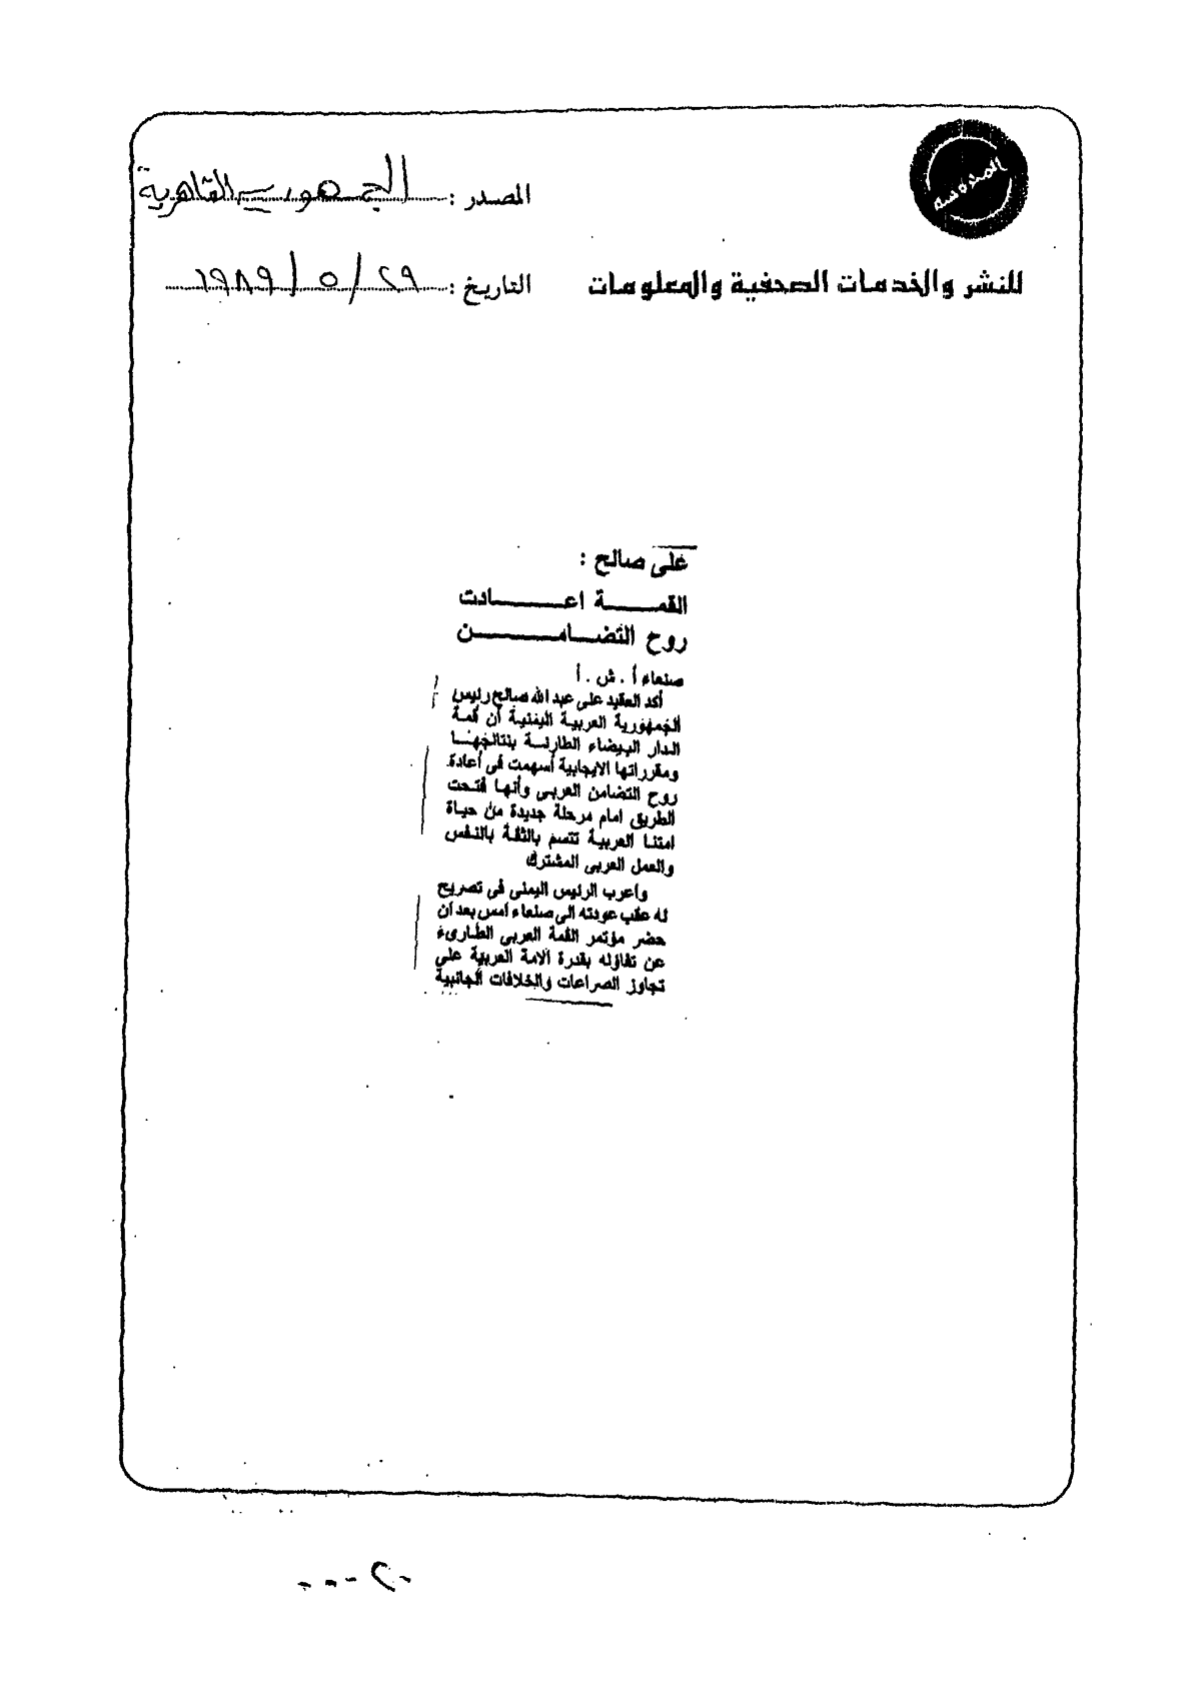 المصدر : الجمهورية القاهرية
للنشر والخدمات الصحفية والمعلومات
التاريخ : ٢٩ / ٥ / ١٩٨٩
على صالح :
القمــــة اعــــادت
روح التضــامــــن
صنعاء أ . ش . أ
أكد العقيد على عبد الله صالح رئيس
الجمهورية العربية اليمنية أن قمة
الدار البيضاء الطارئة بنتائجهـا
ومقرراتها الايجابية أسهمت فى أعادة
روح التضامن العربى وأنها فتحت
الطريق امام مرحلة جديدة من حياة
امتنا العربية تتسم بالثقة بالنفس
والعمل العربى المشترك
وأعرب الرئيس اليمنى فى تصريح
له عقب عودته الى صنعاء امس بعد أن
حضر مؤتمر القمة العربى الطارىء
عن تفاؤله بقدرة الامة العربية على
تجاوز الصراعات والخلافات الجانبية